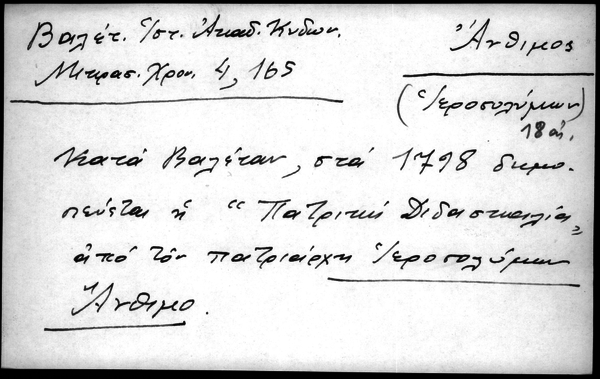 Βαλέτ. Ἱστ. Ἀκαδ. Κυδων.
Μικρασ. Χρον. 4, 165
Ἄνθιμος
(Ἱεροσολύμων)
18 αἰ.
Κατὰ Βαλέταν, στὰ 1798 δημο-
σιεύεται ἡ "Πατρικὴ Διδασκαλία"
ἀπὸ τὸν πατριάρχη Ἱεροσολύμων
Ἄνθιμο.